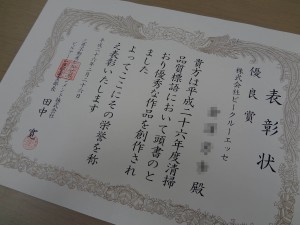 表彰状
優良賞
株式会社ビータルーエッセ
殿
貴方は平成二十六年度清掃
品質標語において頭書のと
おり優秀な作品を創作され
ました
よってここにその栄誉を称
え表彰いたします
田中